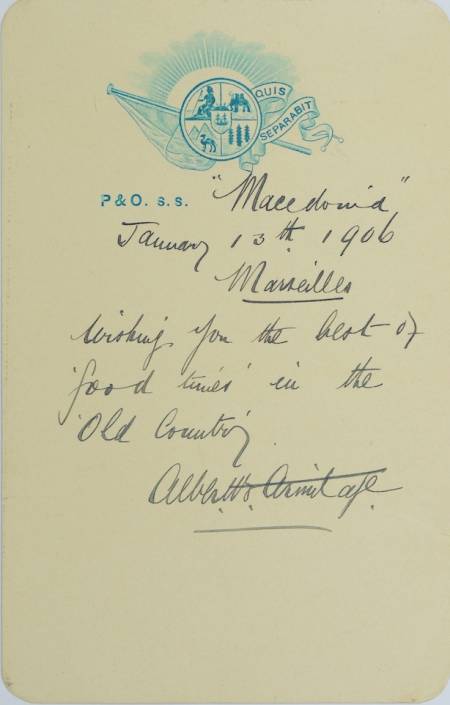 QUIS
SEPARABIT
P & O. S. S. "Macedonia"
January 13th 1906
Marseilles
Wishing you the best of
'good times' in the
'Old Country'
Albert B. Armitage